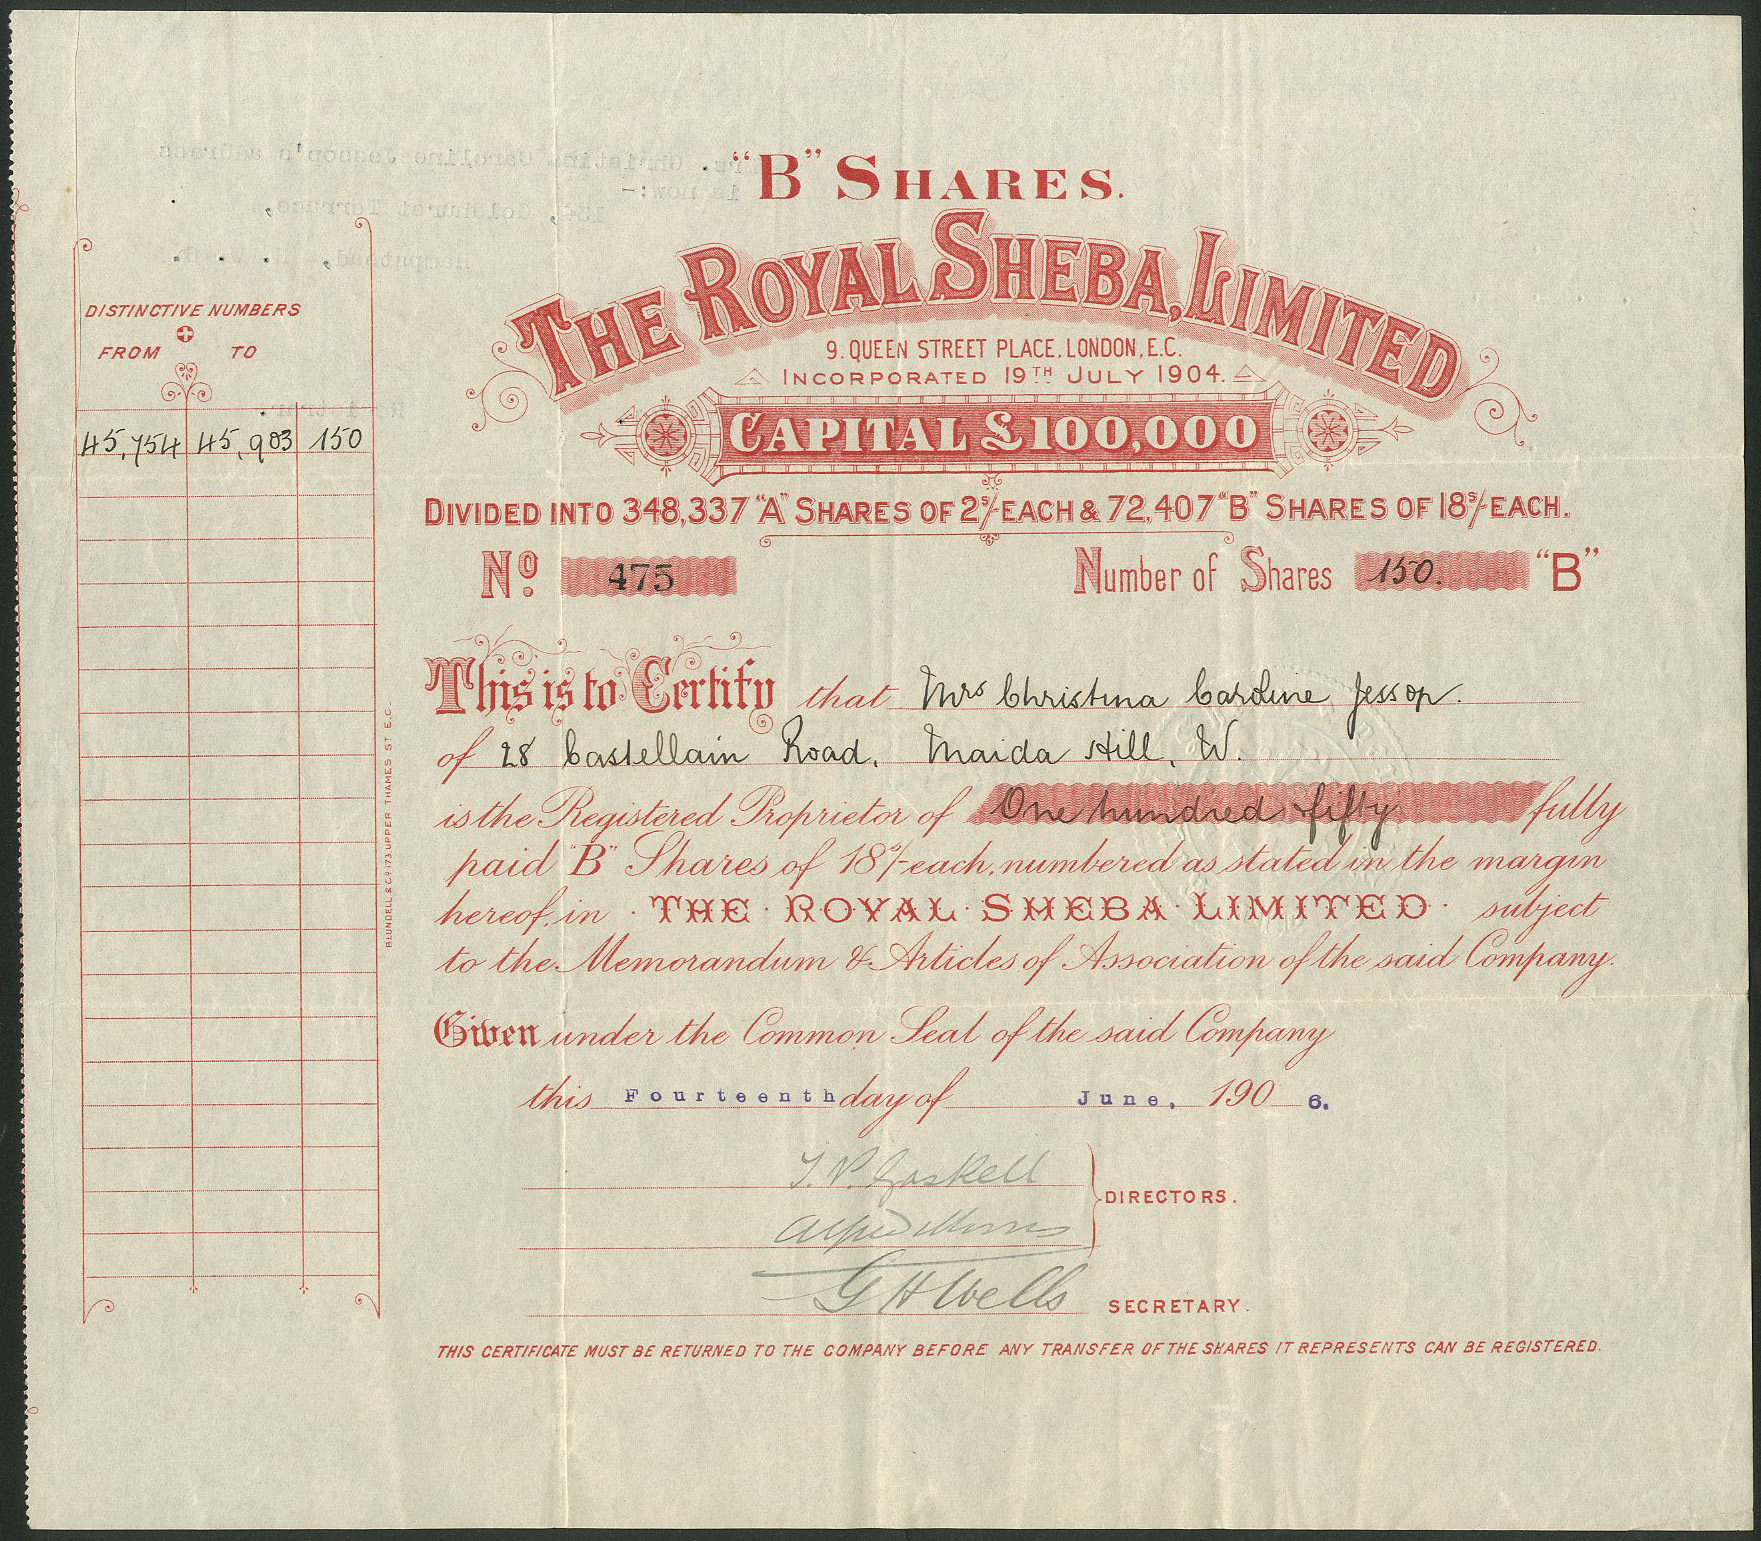 "B" SHARES.
THE ROYAL SHEBA, LIMITED
9. QUEEN STREET PLACE, LONDON, E.C.
INCORPORATED 19TH JULY 1904.
CAPITAL £100,000
DIVIDED INTO 348,337 "A" SHARES OF 2s/- EACH & 72,407 "B" SHARES OF 18s/- EACH.
No. 475
Number of Shares 150. "B"
DISTINCTIVE NUMBERS
FROM TO
45,754 45,903 150
This is to Certify that Mrs Christina Caroline Jessop.
of 28 Castellain Road, Maida Hill, W.
is the Registered Proprietor of One hundred & fifty fully
paid "B" Shares of 18s/- each, numbered as stated in the margin
hereof, in THE ROYAL SHEBA LIMITED subject
to the Memorandum & Articles of Association of the said Company.
Given under the Common Seal of the said Company
this Fourteenth day of June, 1906.
T. P. Gaskell
Alfred Morris
DIRECTORS.
G H Wells SECRETARY.
THIS CERTIFICATE MUST BE RETURNED TO THE COMPANY BEFORE ANY TRANSFER OF THE SHARES IT REPRESENTS CAN BE REGISTERED.
BLUNDELL & Co. 173, UPPER THAMES ST. E.C.
Mrs. Christina Caroline Jessop's address
is now:-
Goldhurst Terrace,
Hampstead, N. W.
Registrar.